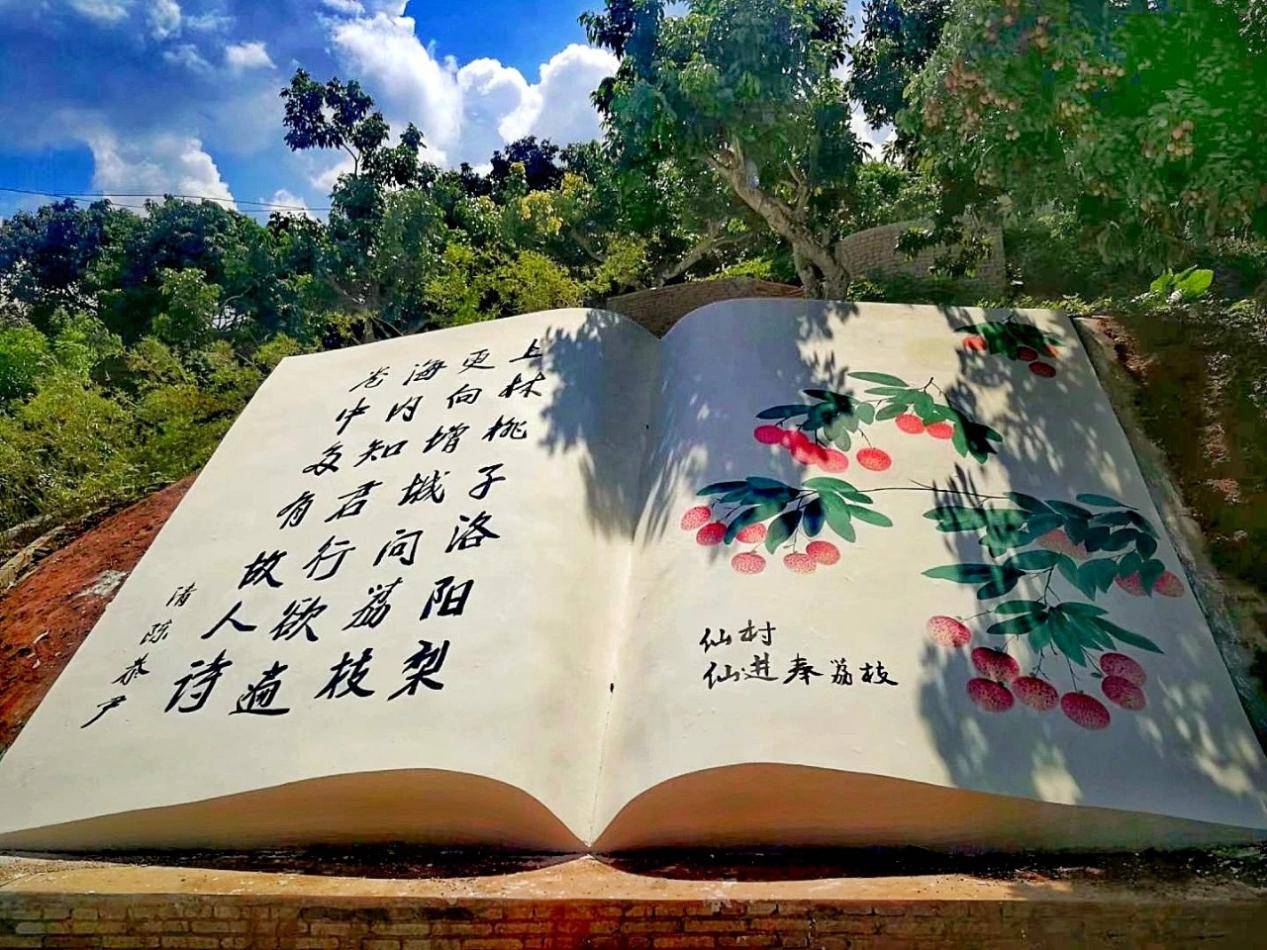 上林桃子洛阳梨
更向增城问荔枝
海内知君行欲遍
卷中多有故人诗
清陈恭尹
仙村
仙进奉荔枝